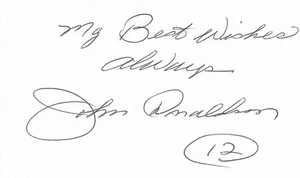 My Best Wishes
always
John Donaldson
12